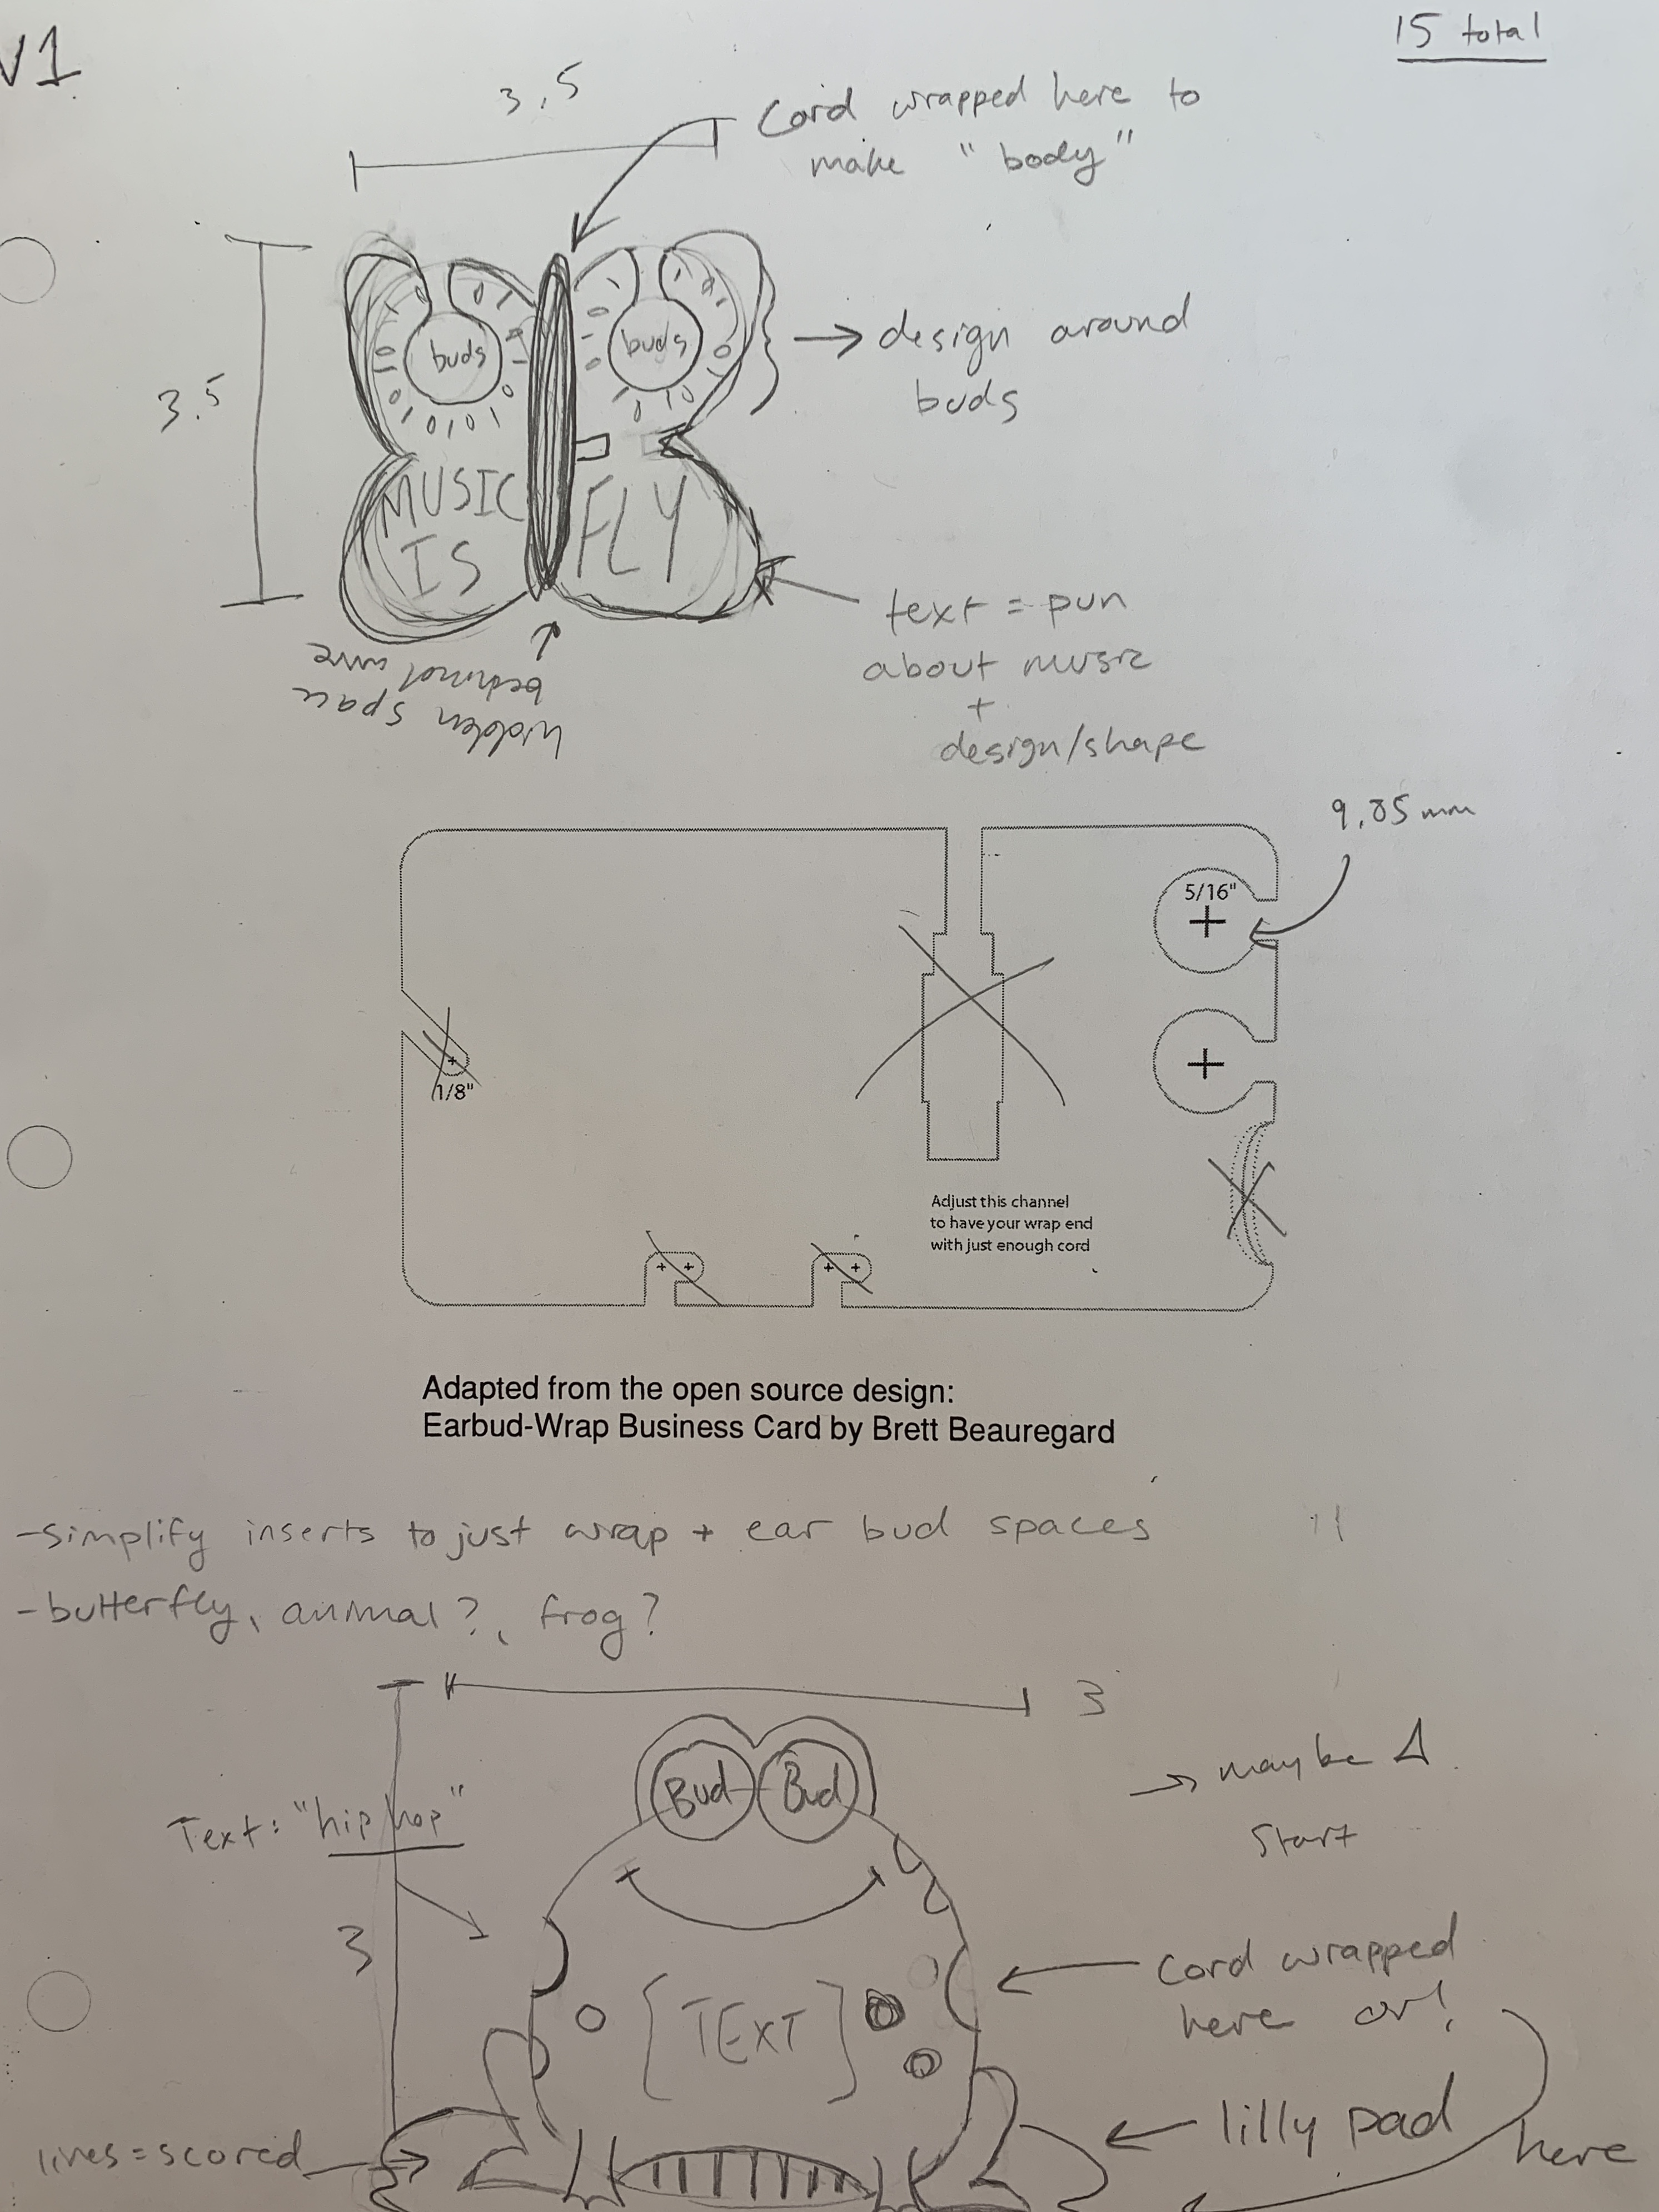 V1
15 total
3.5
Cord wrapped here to
make "body"
3.5
buds
buds
design around
buds
MUSIC
IS
FLY
text = pun
about music
+
design/shape
hidden space
behind wire
9.85 mm
5/16"
1/8"
Adjust this channel
to have your wrap end
with just enough cord
Adapted from the open source design:
Earbud-Wrap Business Card by Brett Beauregard
-simplify inserts to just wrap + ear bud spaces
-butterfly, animal?, frog?
3
Bud
Bud
maybe
start
Text: "hip hop"
3
Cord wrapped
here or!
[TEXT]
lilly pad
here
lines=scored